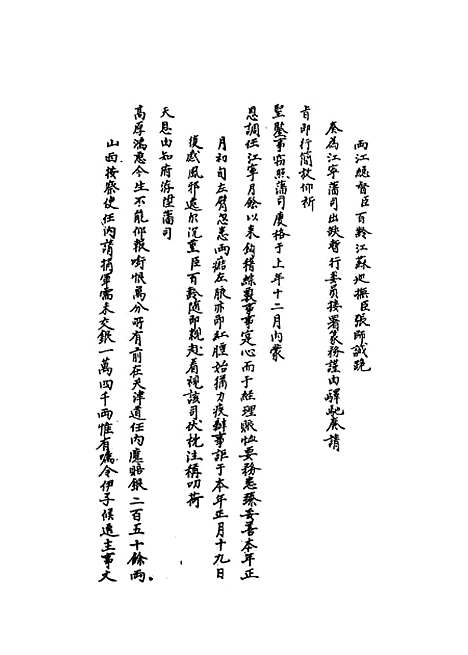 兩江總督臣百齡江蘇巡撫臣張師誠跪
奏為江寧藩司出缺暫行委員接署篆務謹由驛馳奏請
旨即行簡放仰祈
聖鑒事竊照藩司慶格于上年十二月內蒙
恩調任江寧月餘以來鈎稽綜覈事事定心而于經理賑恤要務悉臻妥善本年正
月初旬左臂忽患兩癤左腋亦即紅腫始猶力疾辦事詎于本年正月十九日
復感風邪遽爾沉重臣百齡隨即親赴看視該司伏枕泣稱叨荷
天恩由知府洊陞藩司
高厚鴻慈今生不能仰報銜恨萬分所有前在天津道任內應賠銀二百五十餘兩
山西按察使任內請捐軍需未交銀一萬四千兩惟有囑令伊子候選主事文